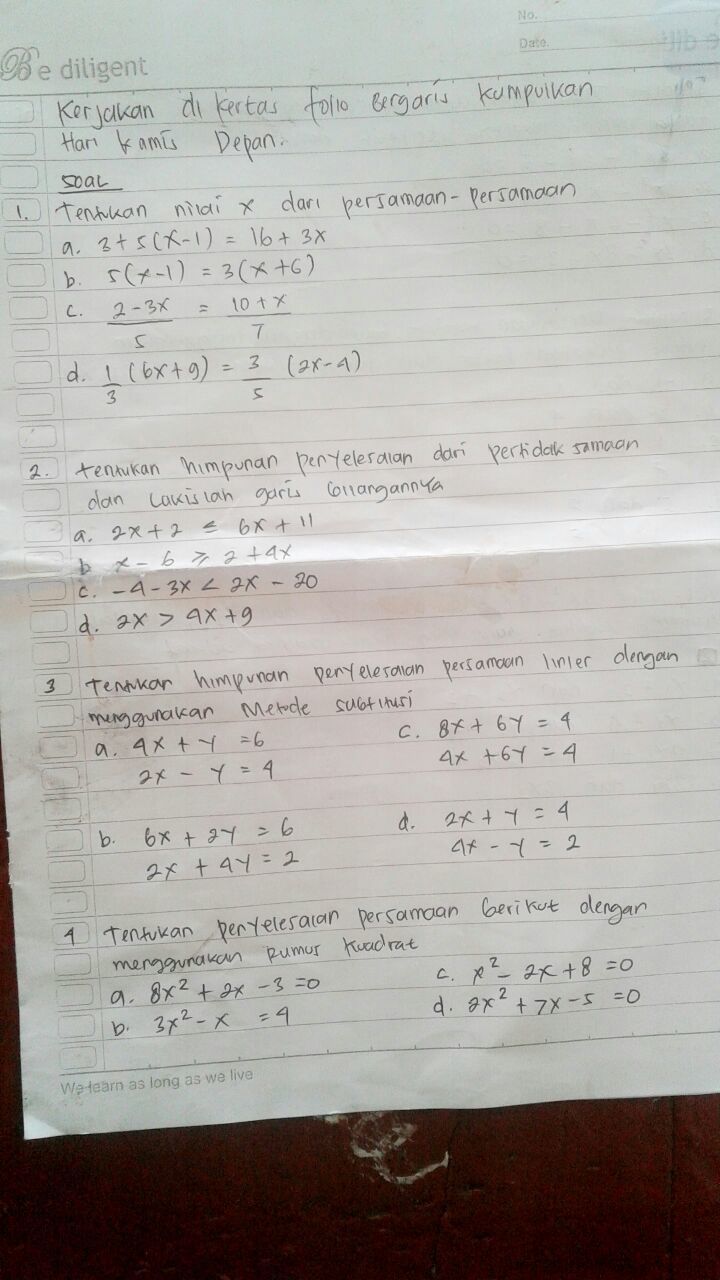 No.
Date.
Be diligent
Kerjakan di kertas folio Bergaris kumpulkan
Hari kamis Depan.
SOAL
1. Tentukan nilai x dari persamaan-persamaan
a. 3+5(x-1) = 16+3x
b. 5(x-1) = 3(x+6)
c. \frac{2-3x}{5} = \frac{10+x}{7}
d. \frac{1}{3} (6x+9) = \frac{3}{5} (2x-4)
2. tentukan himpunan penyelesaian dari pertidak samaan
dan Lukislah garis bilangannya
a. 2x+2 ≤ 6x+11
b x-6 ≥ 2+4x
c. -4-3x < 2x-20
d. 2x > 4x+9
3 Tentukan himpunan penyelesaian persamaan linier dengan
menggunakan Metode subtitusi
a. 4x+y =6
2x - y = 4
b. 6x + 2y = 6
2x + 4y = 2
c. 8x + 6y = 4
4x +6y = 4
d. 2x + y = 4
4x - y = 2
4 Tentukan penyelesaian persamaan berikut dengan
menggunakan Rumus kuadrat
a. 8x² + 2x -3 =0
b. 3x² - x = 4
c. x² - 2x +8 =0
d. 2x² + 7x -5 =0
We learn as long as we live